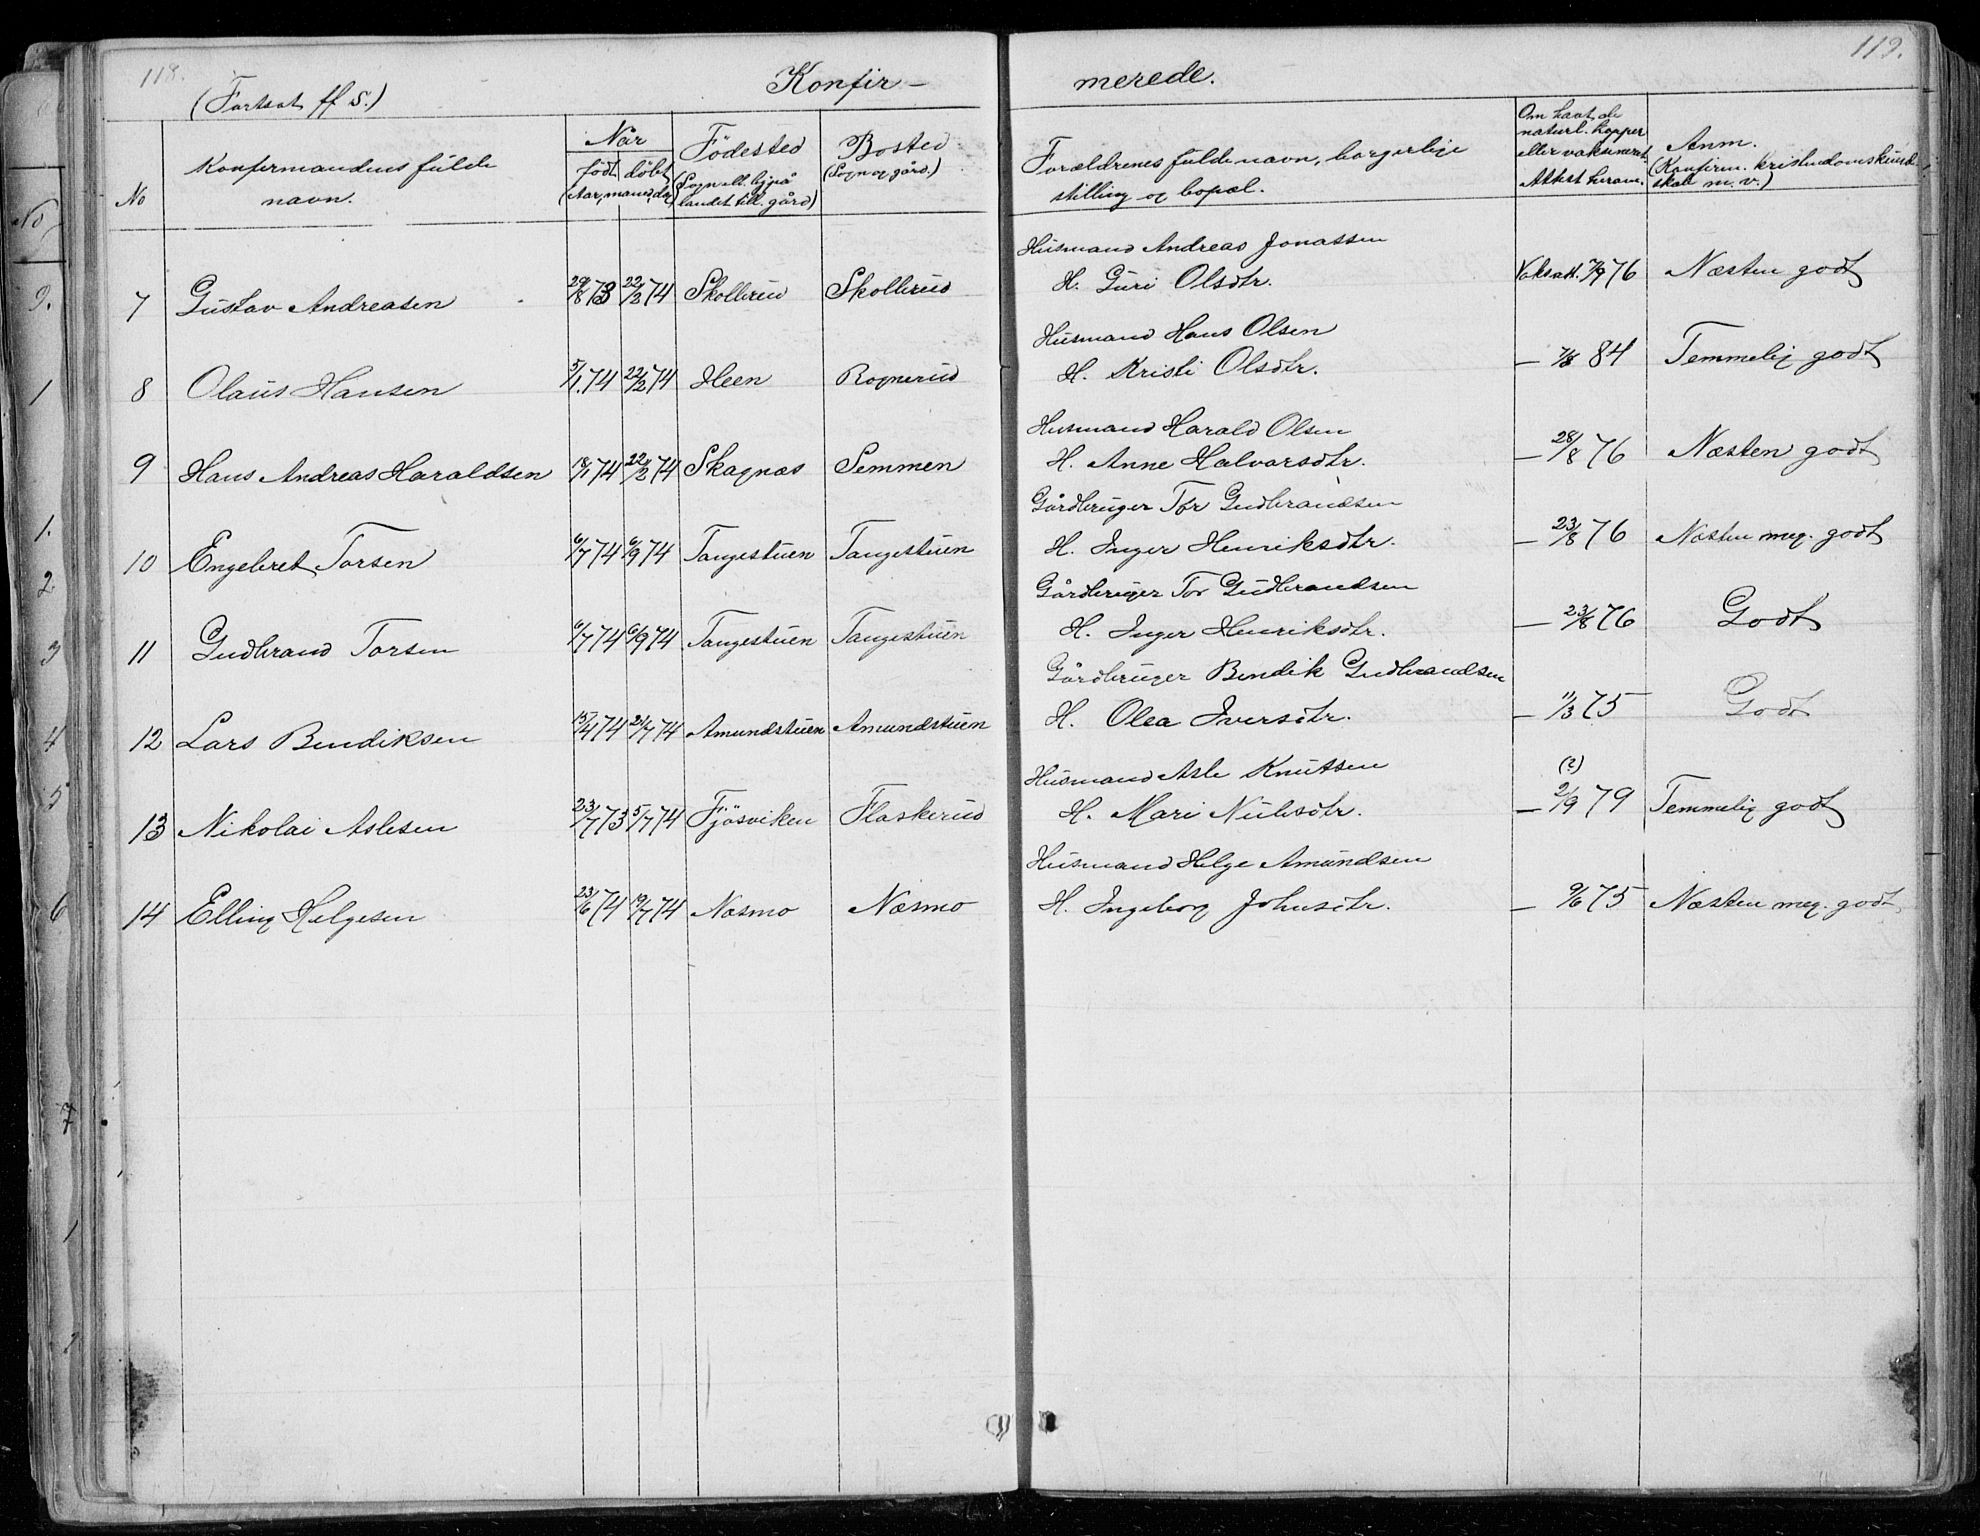 118.
(Fortsat ff S.)
Konfir-
No
Konfirmandens fulde
navn.
Når
født døbt
(Aar, maaned, dag)
Födested
(Sogn ell. by, på
landet till. gård)
Bosted
(Sogn og gård.)
7 Gustav Andreasen 29/8 73 22/2 74 Skollerud Skollerud
8 Olaus Hansen 5/1 74 22/2 74 Heen Rognerud
9 Hans Andreas Haraldsen 18/1 74 22/2 74 Skagnæs Semmen
10 Engebret Torsen 6/7 74 6/9 74 Tangestuen Tangestuen
11 Gudbrand Torsen 6/7 74 6/9 74 Tangestuen Tangestuen
12 Lars Bendiksen 15/4 74 24/7 74 Amundstuen Amundstuen
13 Nikolai Aslesen 23/7 73 5/7 74 Fjösviken Flaskerud
14 Elling Helgesen 23/6 74 19/7 74 Næsmo Næsmo
119.
merede.
Forældrenes fulde navn, borgerlige
stilling og bopæl.
Om havt de
naturl. kopper
eller vakcineret
Attest herom.
Anm.
(Konfirm. kristendomskund-
skab m. v.)
Husmand Andreas Jonassen
H. Guri Olsdtr. Vaksatt. 7/9 76 Næsten godt
Husmand Hans Olsen
H. Kristi Olsdtr. — 7/8 84 Temmelig godt
Husmand Harald Olsen
H. Anne Halvorsdtr. — 28/8 76 Næsten godt
Gårdbruger Tor Gudbrandsen
H. Inger Henriksdtr. — 23/8 76 Næsten meg. godt
Gårdbruger Tor Gudbrandsen
H. Inger Henriksdtr. — 23/8 76 Godt
Gårdbruger Bendik Gudbrandsen
H. Olea Iversdtr. — 11/3 75 Godt
Husmand Asle Knutsen (?)
H. Mari Nilsdtr. — 2/9 79 Temmelig godt
Husmand Helge Amundsen
H. Ingeborg Johnsdtr. — 9/6 75 Næsten meg. godt